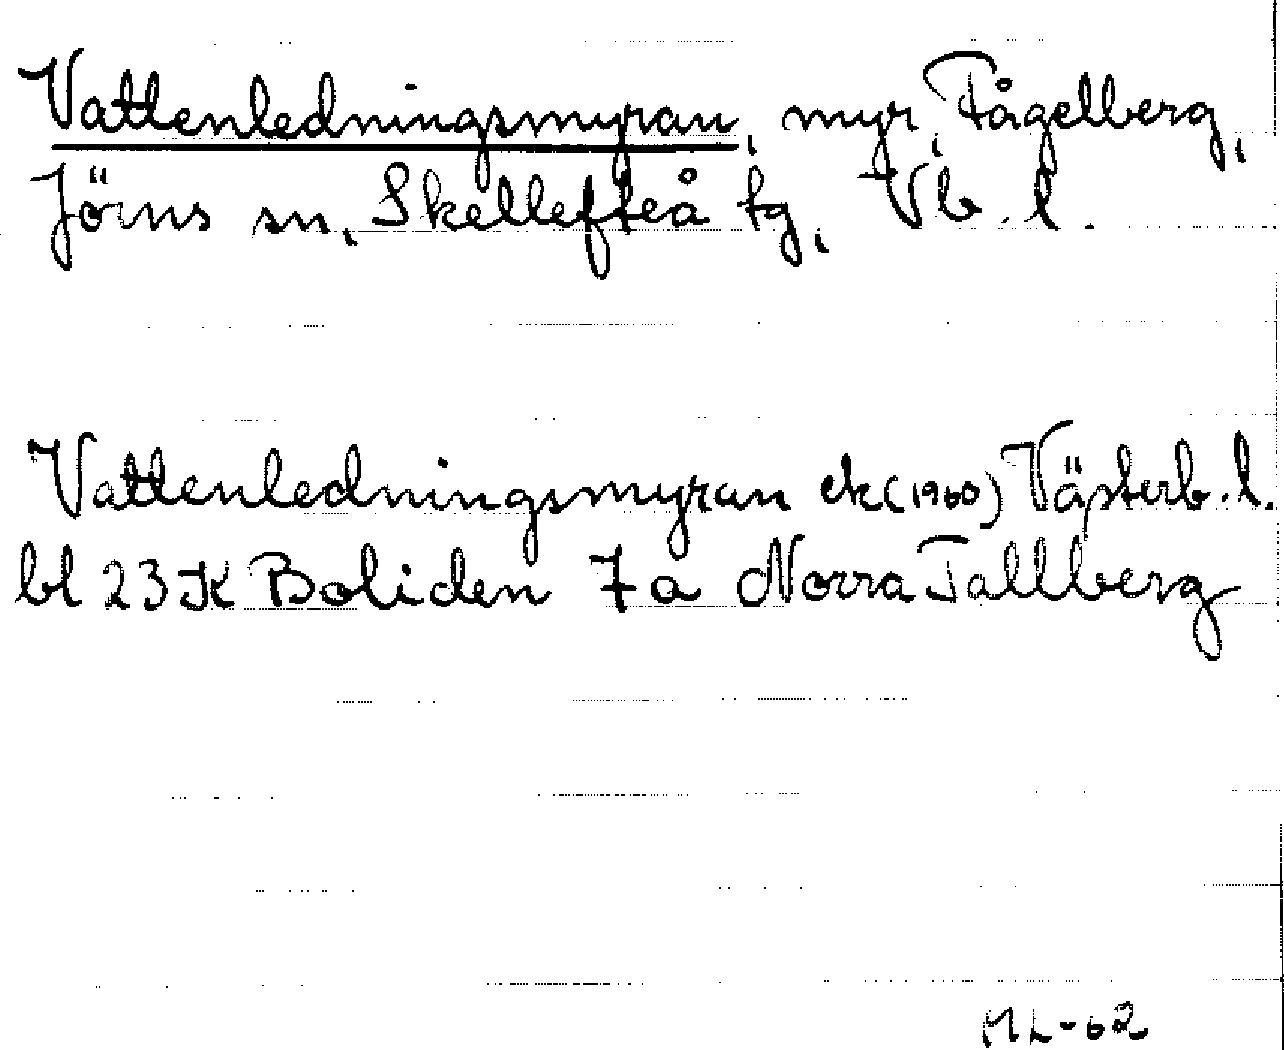 Vattenledningsmyran, myr, Fågelberg,
Jörns sn, Skellefteå tg, Vb. l.
Vattenledningsmyran ek (1960) Västerb. l.
bl 23 K Boliden 7a Norra Tallberg
ML-62